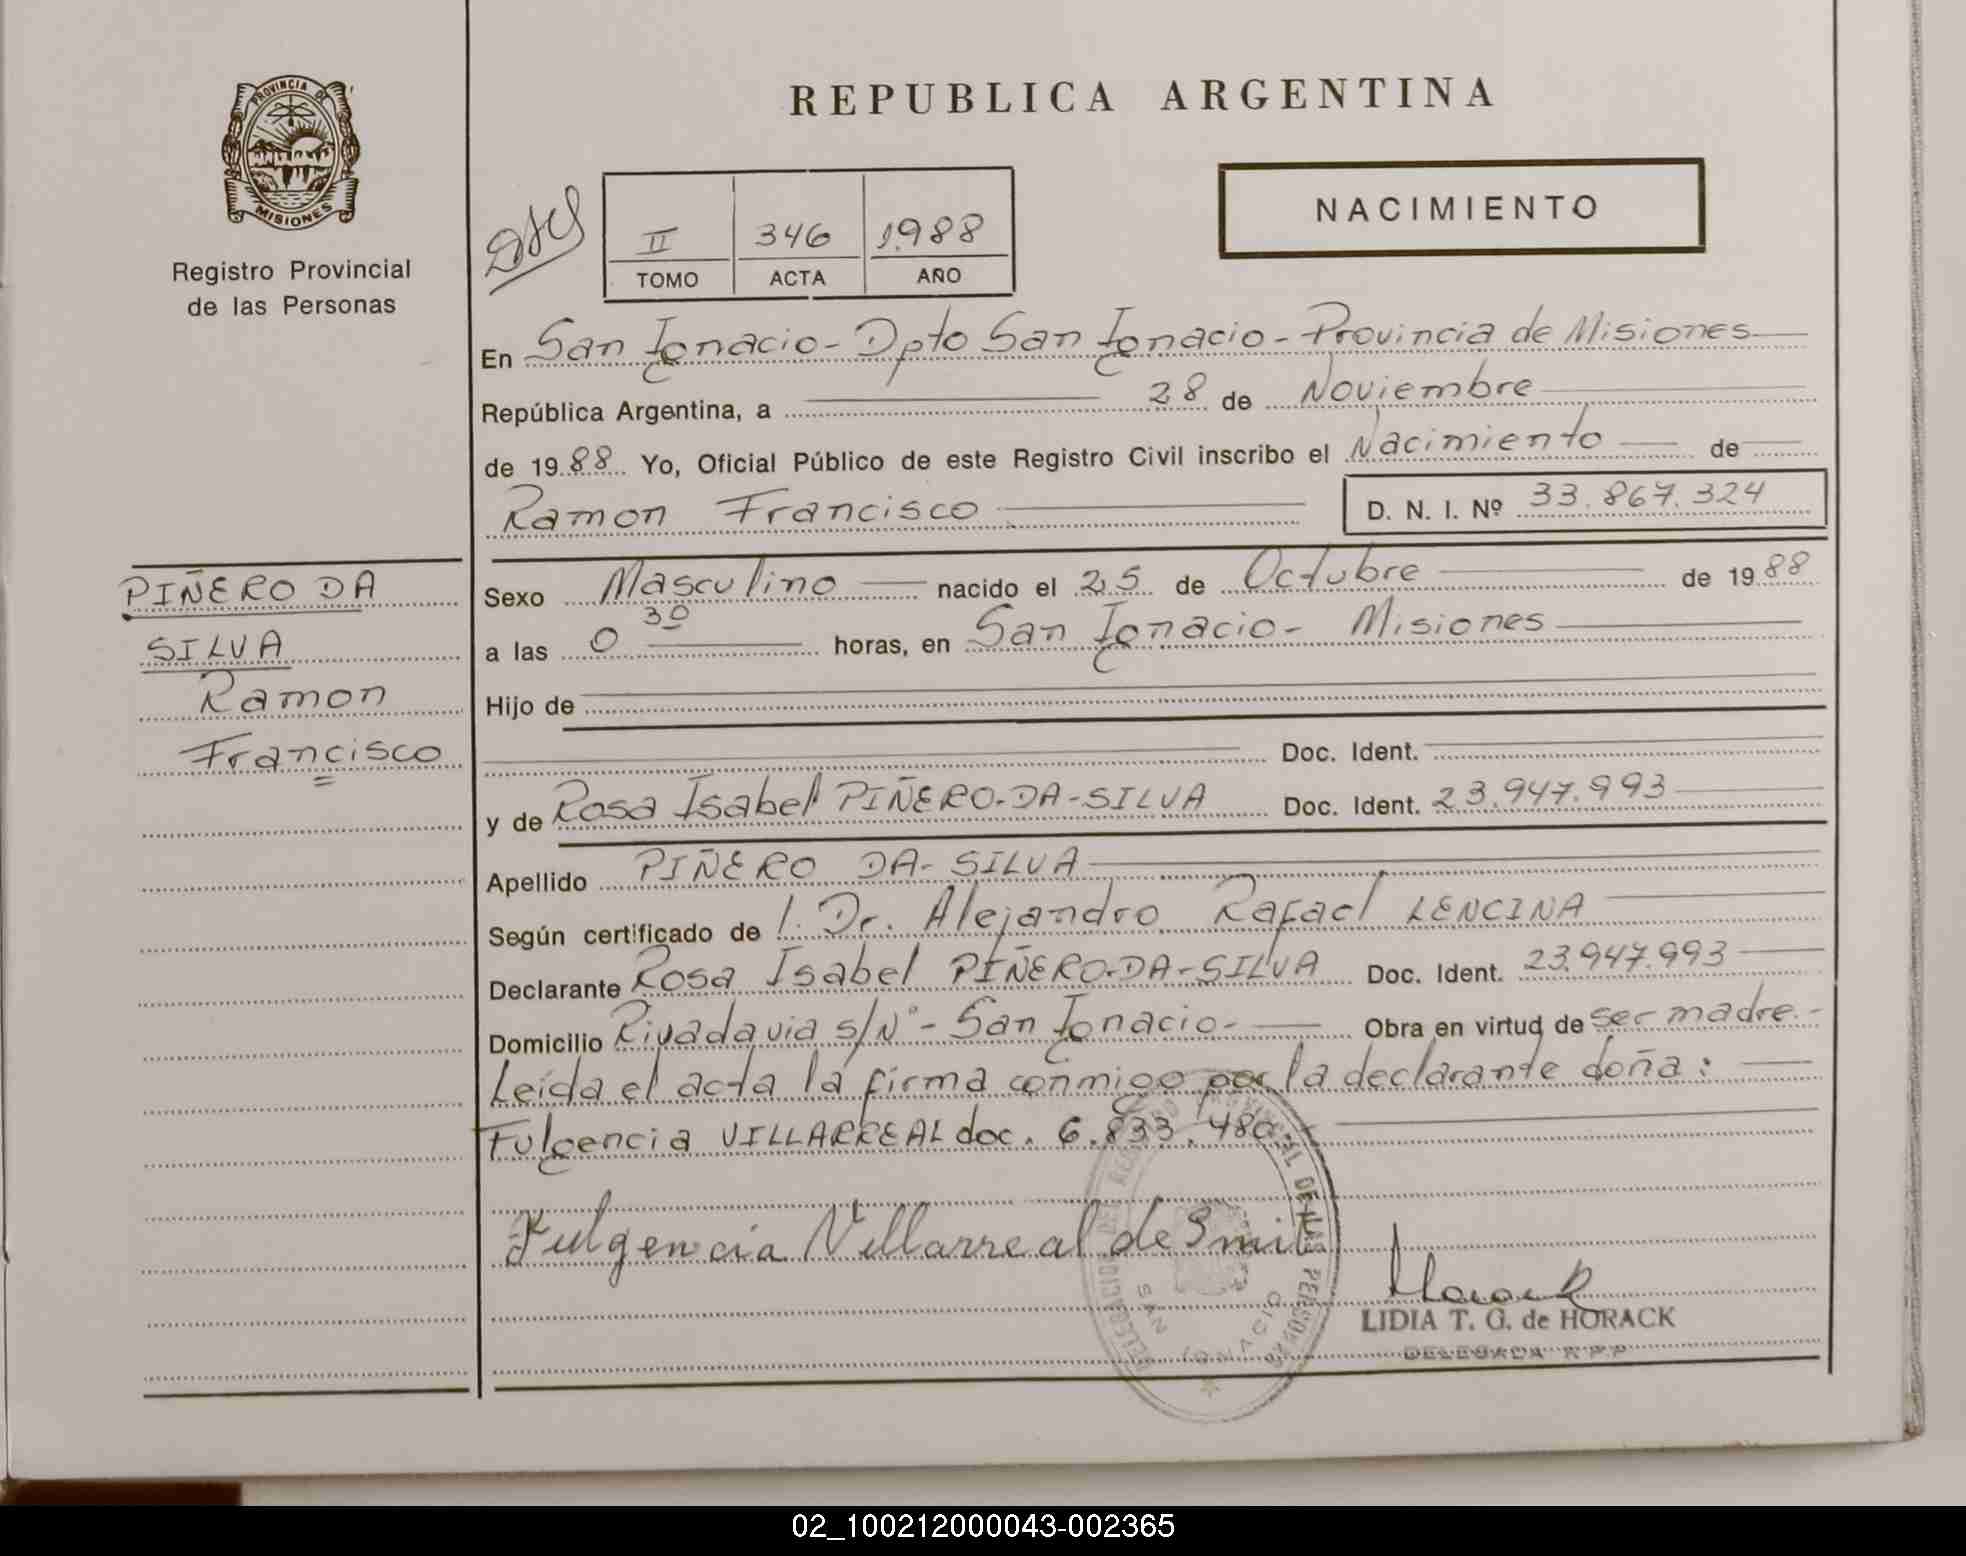 PROVINCIA DE
MISIONES
Registro Provincial
de las Personas
REPUBLICA ARGENTINA
NACIMIENTO
II 346 1.988
TOMO ACTA AÑO
En San Ignacio - Dpto San Ignacio - Provincia de Misiones
República Argentina, a 28 de Noviembre
de 1988 Yo, Oficial Público de este Registro Civil inscribo el Nacimiento de
Ramon Francisco D. N. I. Nº 33.867.324
PIÑERO DA
SILVA
Ramon
Francisco
Sexo Masculino nacido el 25 de Octubre de 1988
a las 0 30 horas, en San Ignacio - Misiones
Hijo de
Doc. Ident.
y de Rosa Isabel PIÑERO-DA-SILVA Doc. Ident. 23.947.993
Apellido PIÑERO DA-SILVA
Según certificado de l. Dr. Alejandro Rafael LENCINA
Declarante Rosa Isabel PIÑERO-DA-SILVA Doc. Ident. 23.947.993
Domicilio Rivadavia s/Nº - San Ignacio - Obra en virtud de ser madre.-
Leída el acta la firma conmigo por la declarante doña:
Fulgencia VILLARREAL doc. 6.833.480
Fulgencia Villarreal de Smit
Horack
LIDIA T. G. de HORACK
DELEGADA R P P
REGISTRO PROVINCIAL DE LAS PERSONAS
DELEGACION
SAN IGNACIO
02_100212000043-002365